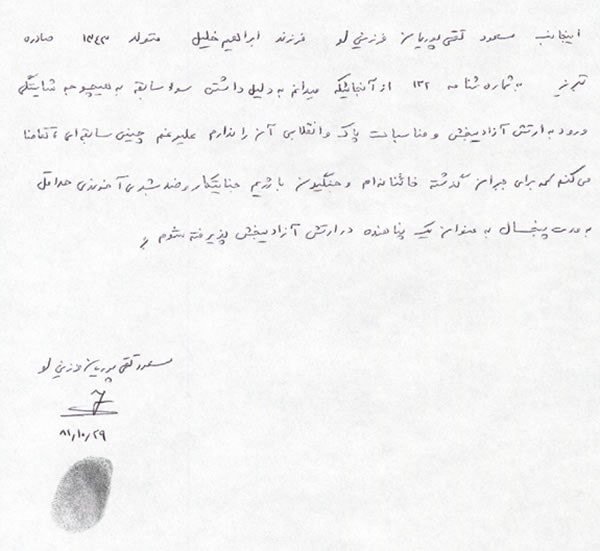 اینجانب مسعود تقی پوریان قزرینی لو فرزند ابراهیم خلیل متولد ۱۳۴۳ صادره
تبریز به شماره شناسنامه ۱۳۲ از آنجائیکه میدانم به دلیل داشتن سوء سابقه به هیچوجه شایستگی
ورود به ارتش آزادیبخش و مناسبات پاک و انقلابی آن را ندارم علیرغم چنین سابقه ای تقاضا
می کنم که برای جبران گذشته خائنانه ام و جنگیدن با رژیم جنایتکار و ضد بشری آخوندی حداقل
به مدت پنجسال به عنوان یک پناهنده در ارتش آزادیبخش پذیرفته شوم
مسعود تقی پوریان لو
۸۱/۱۰/۲۹